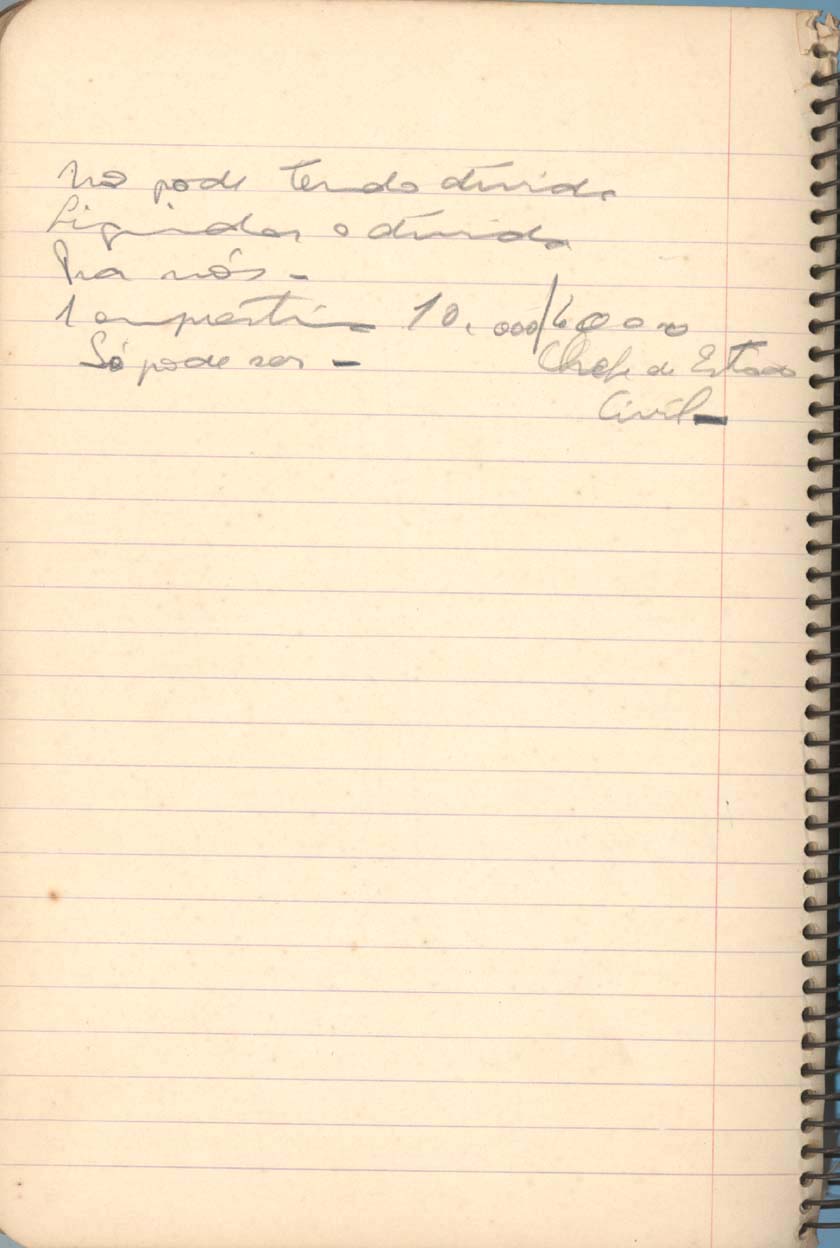 não pode tendo dívida
Liquidar a dívida
Pra nós -
1 empréstimo 10.000/60000
Só pode ser - Chefe de Estado
Civil -